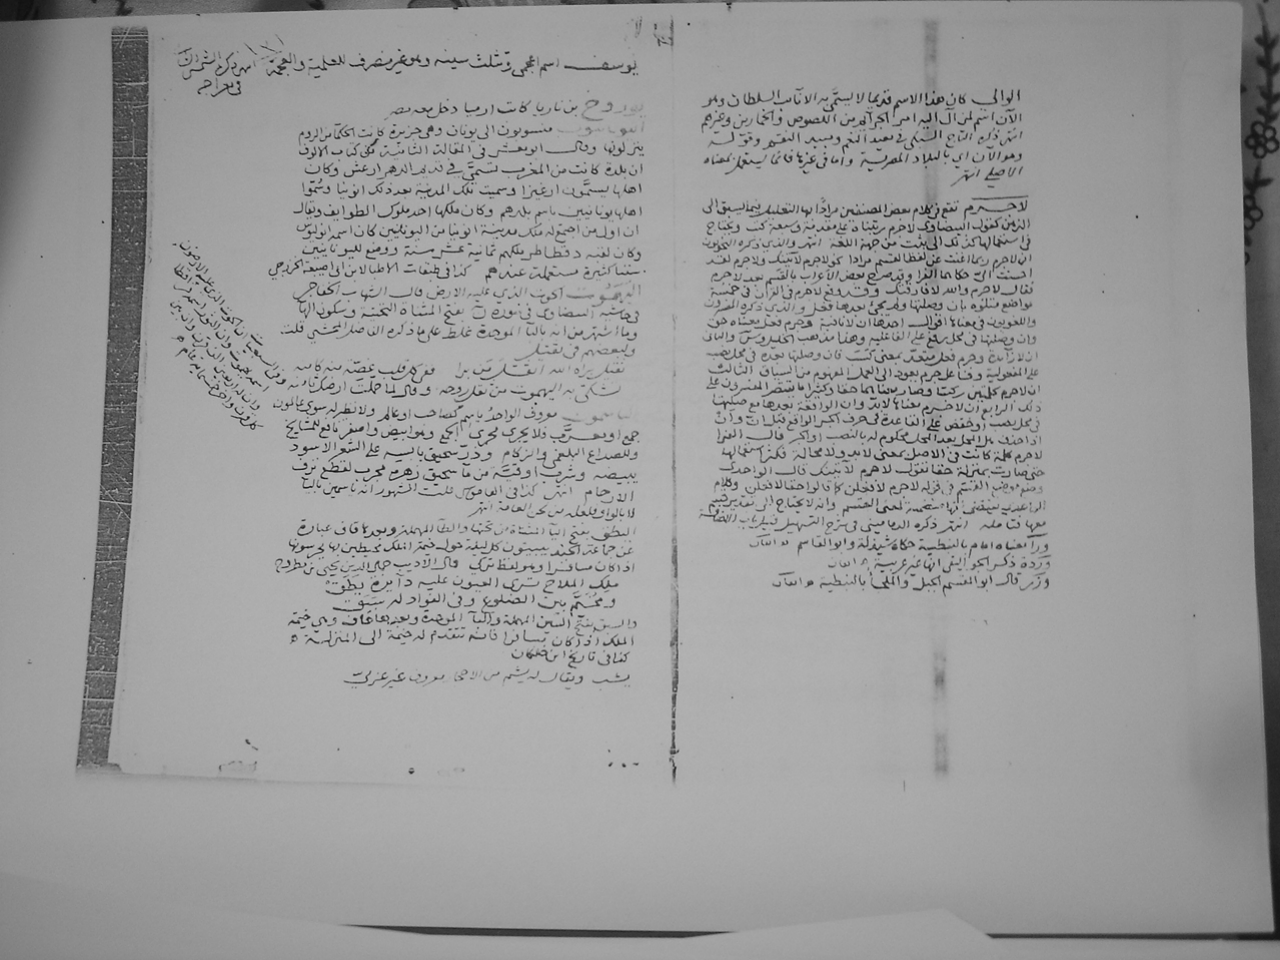 الوالي كان هذا الاسم قديما لا يسمى به الا نائب السلطان وهو
الآن اسم لمن آل اليه امر الجرائم من اللصوص والخمارين وغيرهم
انتهى ذكره التاج السبكي في معيد النعم ومبيد النقم وقوله
وهو الآن اي بالبلاد المصرية وأما في غيرها فانما يستعمل بمعناه
الاصلي انتهى
لا جرم تقع في كلام بعض المصنفين مرادا بها التعليل فيما يسبق الى
الذهن كقول البيضاوي لا جرم رتبناه على مقدمة وسبعة كتب ويحتاج
في استعمالها كذلك الى ثبت من جهة اللغة انتهى والذي ذكره النحويون
ان لا جرم ربما اغنت عن لفظ القسم مرادا كو لا جرم لآتينك ولا جرم لقد
احسنت اليك حكاها الفرا وقد صرح بعض الأعراب بالقسم بعد لا جرم
فقال لا جرم والله لا فارقتك وقد وقع لا جرم في القرآن في خمسة
مواضع متلوة بان وصلتها ولم يجئ بعدها فعل والذي ذكره المفسرون
واللغويون في معناها اقوال احدها ان لا نافية وجرم فعل بمعناه حق
وان وصلتها في محل رفع على الفاعلية وهذا مذهب الخليل وس والثاني
ان لا زائدة وجرم فعل متعد بمعنى كسب فان وصلتها بعده في محل نصب
على المفعولية وفاعل جرم يعود الى العمل المفهوم من السياق الثالث
ان لا جرم كلمتين ركبتا وصار معناهما حقا وكثيرا ما يقتصر المفسرون على
ذلك الرابع ان لا جرم معناها لا بد وان الواقعة بعدها مع صلتها
في محل نصب او خفض على القاعدة في حرف الجر الواقع قبل ان وان
اذا حذف هل المحل بعد المحل محكوم له بالنصب او الجر قال الفرا
لا جرم كلمة كانت في الاصل بمعنى لا بد ولا محالة فكثر استعمالها
حتى صارت بمنزلة حقا تقول لا جرم لآتينك قال الواحدي
وضع موضع القسم في قوله لا جرم لأفعلن كما قالوا حقا لافعلن وكلام
الواحدي يقتضي انها متضمنة لمعنى القسم وانه لا يحتاج الى تقدير قسم
معها فتأمله انتهى ذكره الدماميني في شرح التسهيل
ورآء معناه امام بالنبطية حكاه شيذلة وابو القاسم ه اتقان
وردة ذكر الجواليقي انها غير عربية ه اتقان
وزر قال ابو القسم الجبل والملجأ بالنبطية ه اتقان
يوسف اسم اعجمي وتثلث سينه وهو غير منصرف للعلمية والعجمة
يوروخ بن ناريا كاتب ارميا دخل معه مصر
منسوبون الى يونان وهي جزيرة كانت الحكماء من الروم
ينزلونها وحكى ابو معشر في المقالة الثامنة من كتاب الالوف
ان بلدة كانت من المغرب تسمى في قديم الدهر ارغس وكان
اهلها يسمون ارغيزا وسميت تلك المدينة بعد ذلك ايونيا وسموا
اهلها يونانيين باسم بلدهم وكان ملكها احد ملوك الطوايف ويقال
ان اول من اجتمع له ملك مدينة ايونيا من اليونانيين كان اسمه ايوليوس
وكان لقبه دقطاطر ملكهم ثمانية عشر سنة ووضع لليونانيين
سننا كثيرة مستعملة عندهم كذا في طبقات الاطباء لابن ابي اصيبعة الخزرجي
اليهموت الحوت الذي عليه الارض قال الشهاب الخفاجي
في حاشية البيضاوي في سورة ن بفتح المثناة التحتية وسكون الهاء
وما اشتهر من انه بالباء الموحدة غلط على ما ذكره الفاضل المحشي قلت
ولبعضهم في ثقيل
ثقيل يراه الله اثقل من برا ففي كل قلب غصة منه كامنه
تشكى به اليهموت من ثقل روحه وقال لما حملت ارضك ثامنه
الياسمون معروف الواحد ياسم كصاحب او عالم ولا نظير له سوى عالمون
جمع او معرب فلا يجري مجرى الجمع وهو ابيض واصفر نافع للمشايخ
وللصداع البلغمي والزكام وذر سحيق يابسه على الشعر الاسود
يبيضه وشرب اوقية من ماء سحيق زهره مجرب لقطع نزف
الارحام انتهى كذا في القاموس قلت المشهور انه ياسمين بالياء
لا بالواو فلعله من لحن العامة انتهى
اليطق بفتح اليا المثناة من تحتها والطاء المهملة وبعدها قاف عبارة
عن جماعة الجند يبيتون كل ليلة حول خيمة الملك محيطين بها يحرسونها
اذا كان مسافرا وهو لفظ تركي قال الاديب جمال الدين يحيى بن مطروح
ملك الملاح ترى العيون عليه دائرة يطق
ومخيم بين الضلوع وفي الفؤاد له سبق
والسبق بفتح السين المهملة والباء الموحدة وبعدها قاف وهي خيمة
الملك اذا كان مسافرا فانه تتقدم له خيمة الى المنزلة ه
كذا في تاريخ ابن خلكان
يشب ويقال له يشم من الاحجار معروف غير عربي